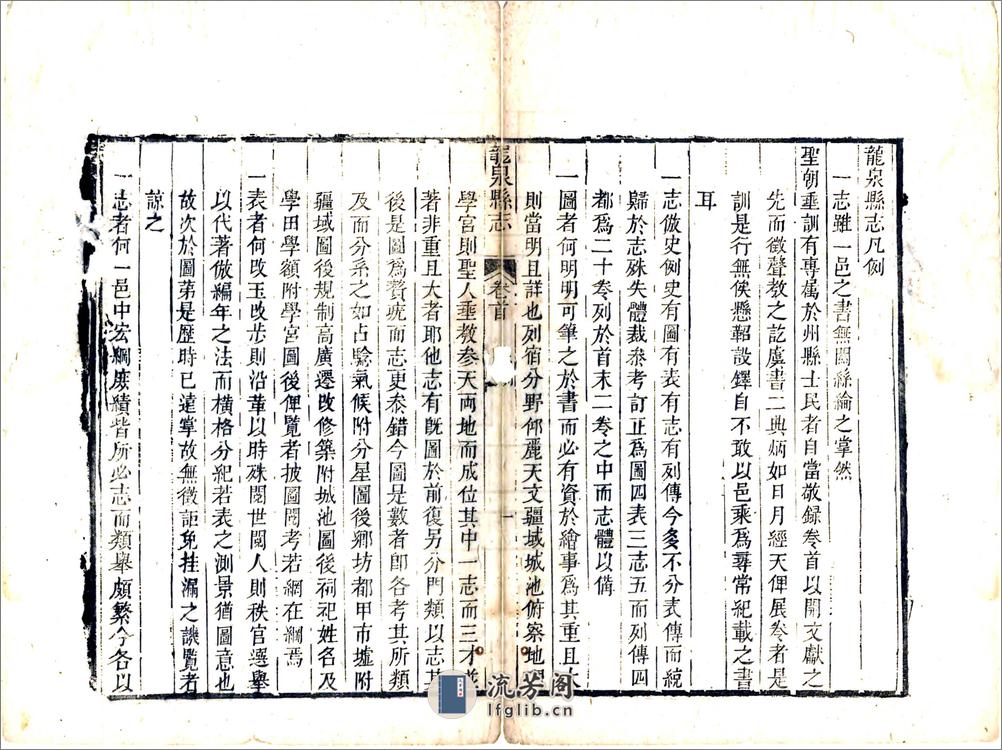 龍泉縣志凡例
一志雖一邑之書無關絲綸之掌然
聖朝垂訓有專屬於州縣士民者自當敬録卷首以開文獻之
先而徵聲教之訖虞書二典炳如日月經天俾展卷者是
訓是行無俟懸鞀設鐸自不敢以邑乘爲尋常紀載之書
耳
一志倣史例史有圖有表有志有列傳今多不分表傳而統
歸於志殊失體裁参考訂正爲圖四表三志五而列傳四
都爲二十卷列於首末二卷之中而志體以備
一圖者何明明可筆之於書而必有資於繪事爲其重且大
則當明且詳也列宿分野仰麗天文疆域城池俯察地
龍泉縣志
卷首
一
學宮則聖人垂教参天両地而成位其中一志而三才
著非重且大者耶他志有旣圖於前復另分門類以志其
後是圖爲贅疣而志更叅錯今圖是數者卽各考其所類
及而分系之如占驗氣候附分星圖後鄉坊都甲市墟附
疆域圖後規制高廣遷改修築附城池圖後祠祀姓名及
學田學額附學宮圖後俾覽者披圖閱考若網在綱焉
一表者何改玉改步則沿革以時殊閱世閱人則秩官選舉
以代著倣編年之法而橫格分紀若表之測景猶圖意也
故次於圖第是歷時已遠掌故無徵詎免挂漏之譏覽者
諒之
一志者何一邑中宏綱庶績皆所必志而類舉頗繁今各以
流芳阁
lfglib.cn